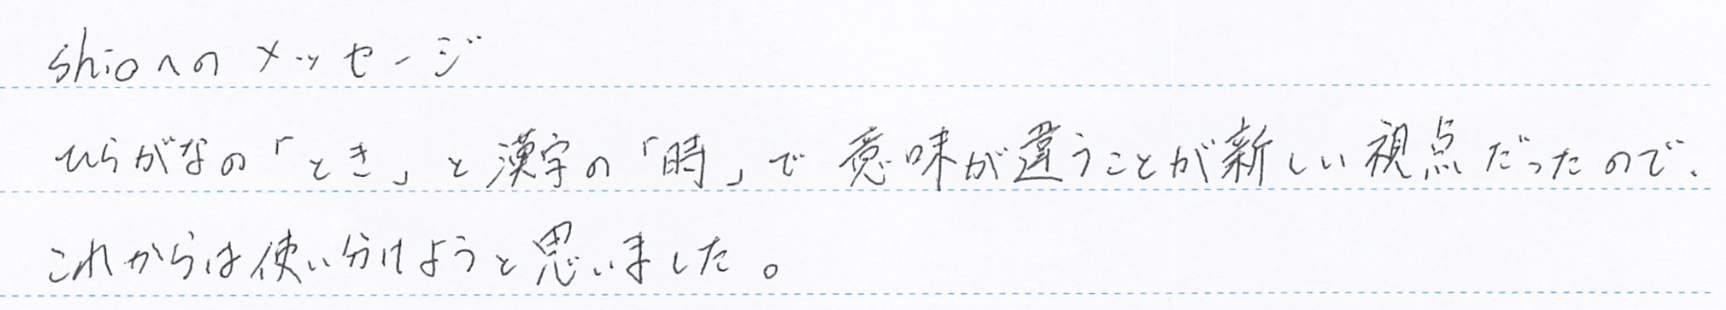 shioへのメッセージ
ひらがなの「とき」と漢字の「時」で意味が違うことが新しい視点だったので、
これからは使い分けようと思いました。